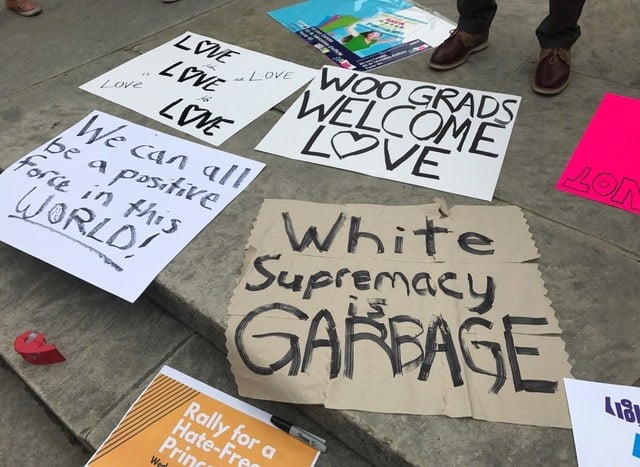 LOVE
is
LOVE
is
LOVE
Love is
is LOVE
WOO GRADS
WELCOME
LOVE
We can all
be a positive
force in this
WORLD!
White
Supremacy
is
GARBAGE
NOT
Rally for a
Hate-Free